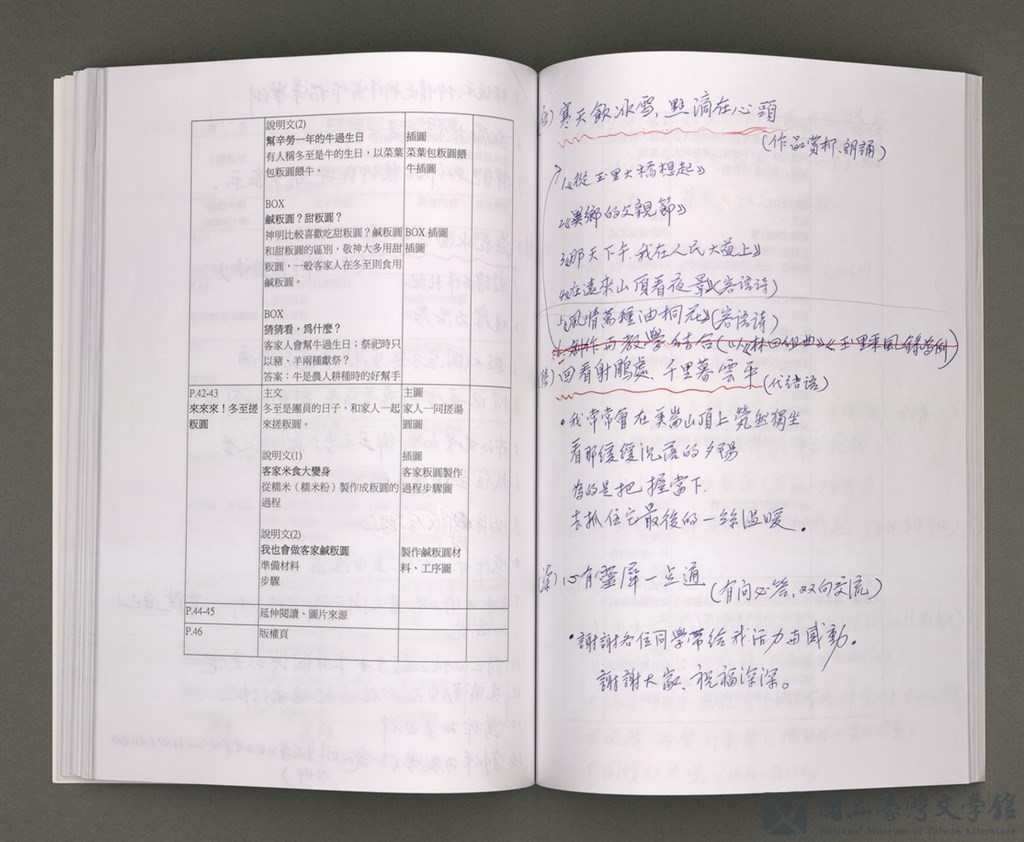 說明文(2)
幫辛勞一年的牛過生日
有人稱冬至是牛的生日，以菜葉
包粄圓餵牛。
插圖
菜葉包粄圓餵
牛插圖
BOX
鹹粄圓？甜粄圓？
神明比較喜歡吃甜粄圓？鹹粄圓
和甜粄圓的區別，敬神大多用甜
粄圓，一般客家人在冬至則食用
鹹粄圓。
BOX 插圖
插圖
BOX
猜猜看，為什麼？
客家人會幫牛過生日；祭祀時只
以豬、羊兩種獻祭？
答案：牛是農人耕種時的好幫手
P.42-43
來來來！冬至搓
粄圓
主文
冬至是團員的日子，和家人一起
來搓粄圓。
主圖
家人一同搓湯
圓圖
說明文(1)
客家米食大變身
從糯米（糯米粉）製作成粄圓的
過程
插圖
客家粄圓製作
過程步驟圖
說明文(2)
我也會做客家鹹粄圓
準備材料
步驟
製作鹹粄圓材
料、工序圖
P.44-45
延伸閱讀、圖片來源
P.46
版權頁
寒天飲冰雪，點滴在心頭
(作品賞析、朗誦)
1.《從玉里大橋想起》
2.《異鄉的父親節》
3.《那天下午，我在人民大道上》
4.《在遠來山頂看夜景》(客語詩)
5.《風情萬種油桐花》(客語詩)
6.創作與教學結合
回看射鵰處，千里暮雲平
(代結語)
•我常常會在美崙山頂上 煢然獨坐
看那緩緩沉落的夕陽
為的是把握當下，
去抓住它最後的一絲溫暖。
心有靈犀一点通
(有问必答，双向交流)
•謝謝各位同學帶給我活力与感動。
謝謝大家，祝福深深。
國立臺灣文學館
National Museum of Taiwan Literature